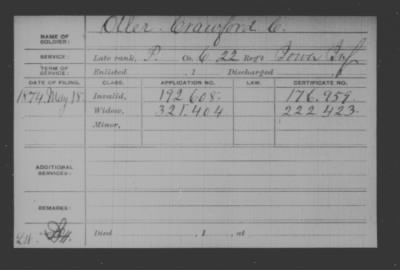 NAME OF SOLDIER: Oller, Crawford C.
SERVICE: Late rank, P. Co. C, 22 Reg't Iowa Inf
TERM OF SERVICE: Enlisted , 1 Discharged , 1
DATE OF FILING. CLASS. APPLICATION NO. LAW. CERTIFICATE NO.
1874, May 18 Invalid, 192608. 176.959.
Widow, 321404 222423.
Minor,
ADDITIONAL SERVICES:
REMARKS:
Died , 1 , at